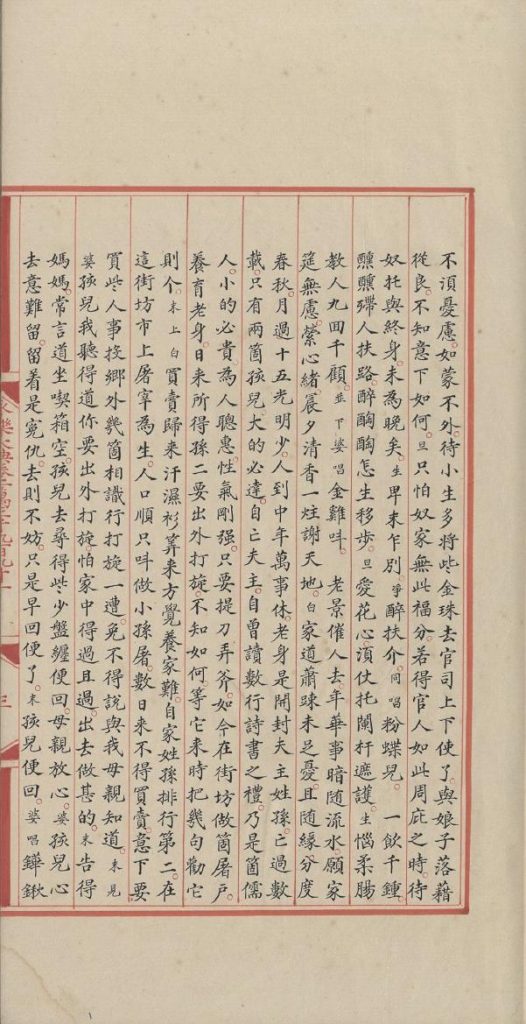 不須憂慮如蒙不外待小生多將些金珠去官司上下使了與娘子落藉
從良不知意下如何旦只怕奴家無此福分若得官人如此周庇之時待
奴托與終身未為晚矣生畢来乍別爭醉扶介同唱粉蝶兒 一飲千鍾
醺醺殢人扶路醉酶酶怎生移步旦愛花心須仗托闌杆遮護生惱柔腸
教人九回千顧並下婆唱金雞呌 老景催人去年華事暗随流水願家
筵無慮縈心緒晨夕清香一炷謝天地白家道蕭踈未足憂且随緣分度
春秋月過十五光明少人到中年萬事休老身是開封夫主姓孫亡過數
載只有兩箇孩兒大的必達自亡夫主自曾讀數行詩書之禮乃是箇儒
人小的必貴為人聰惠性氣剛强只要提刀弄斧如今在街坊做箇屠戶
養育老身日来所得孫二要出外打旋不知如何等它来時把幾句勸它
則个末上白買賣歸来汗濕衫筭来方覺養家難自家姓孫排行第二在
這街坊市上屠宰為生人口順只呌做小孫屠數日来不得買賣意下要
買些人事投鄉外幾箇相識行打旋一遭免不得說與我母親知道末見
婆孩兒我聽得道你要出外打旋怕家中得過且過出去做甚的末告得
媽媽常言道坐喫箱空孩兒去尋得些少盤纏便回母親放心婆孩兒心
去意難留留着是寃仇去則不妨只是早回便了末孩兒便回婆唱鏵鍬
三